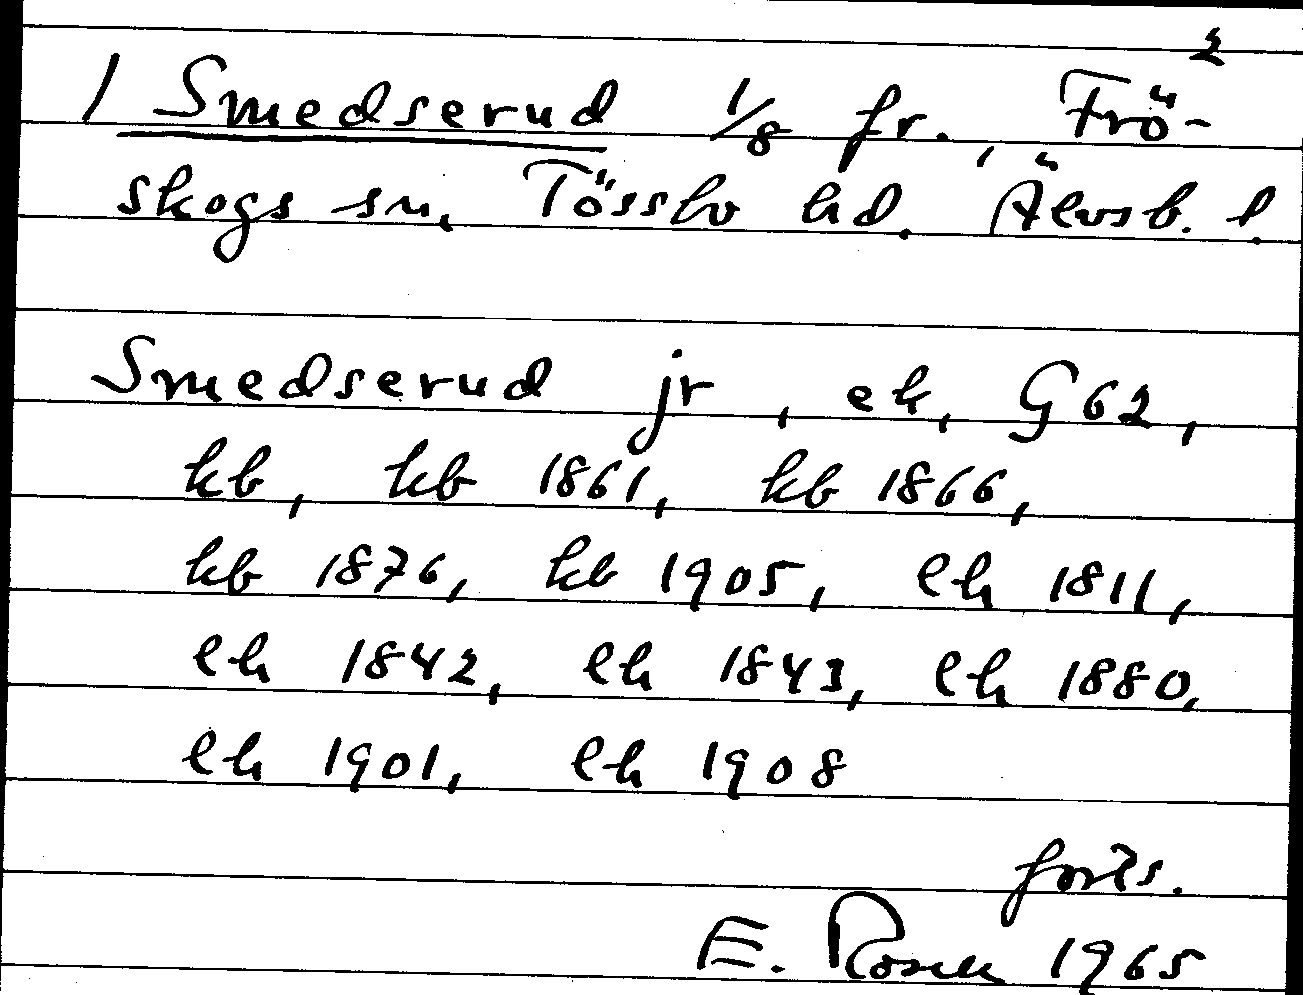 2
1 Smedserud 1/8 fr., Frö-
skogs sn, Tössbo hd. Älvsb. l.
Smedserud jr, ek, G62,
kb, kb 1861, kb 1866,
kb 1876, kb 1905, lh 1811,
lh 1842, lh 1843, lh 1880,
lh 1901, lh 1908
forts.
E. Rosell 1965